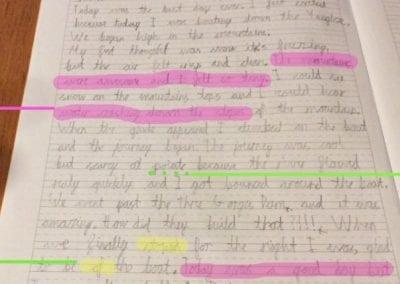 Today was the best day ever. I just ended
because today I was boating down the Yangtze.
We began high in the mountains.
My first thought was wow it's freezing,
but the air felt crisp and clean. The mountains
were awesome and I felt so tiny. I could see
snow on the mountains tops and I could hear
water rushing down the slopes of the mountain.
When the guide appeared I climbed on the boat
and the journey began. The journey was cool
but scary at points because the river flowed
realy quickly and I got bounced around the boat.
We went past the three Gorges Dam, and it was
amazing. How did they build that?!!! When
we finally stoped for the night I was glad
to be of the boat. Today was a good day but